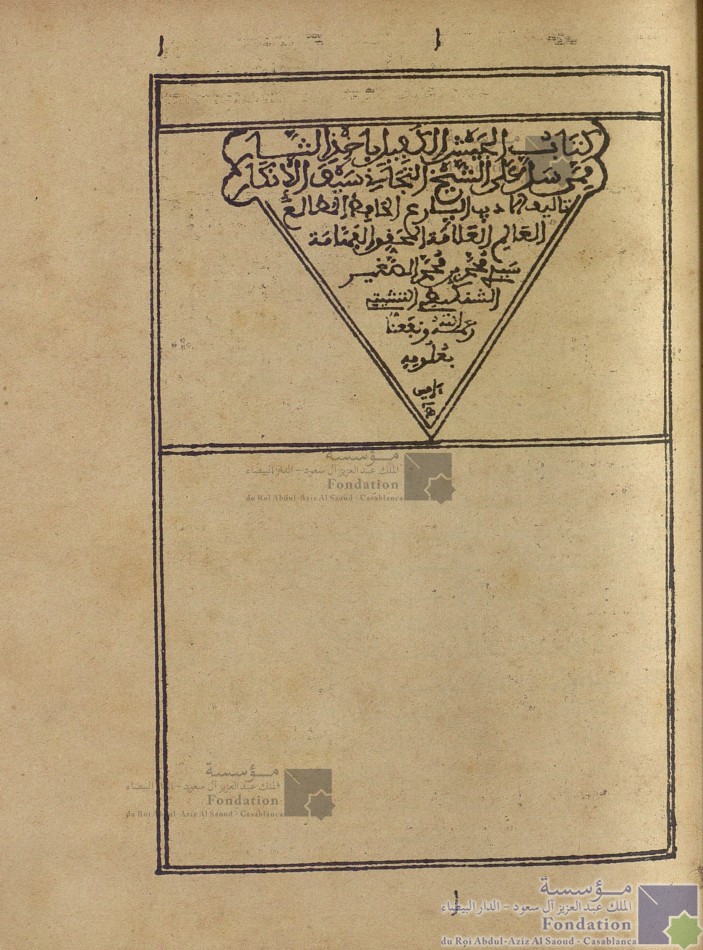 كتاب الجيش الكفيل باخذ الثار
ممن سل على الشيخ التجاني سيف الانكار
تاليف الاديب البارع
العالم العلامة الفهامة
سيدي محمد بن محمد الصغير
الشنكيطي التشيتي
رحمه الله ونفعنا
بعلومه
ءامين
مؤسسة
الملك عبد العزيز آل سعود - الدار البيضاء
Fondation
du Roi Abdul-Aziz Al Saoud - Casablanca
مؤسسة
الملك عبد العزيز آل سعود - الدار البيضاء
Fondation
du Roi Abdul-Aziz Al Saoud - Casablanca
مؤسسة
الملك عبد العزيز آل سعود - الدار البيضاء
Fondation
du Roi Abdul-Aziz Al Saoud - Casablanca